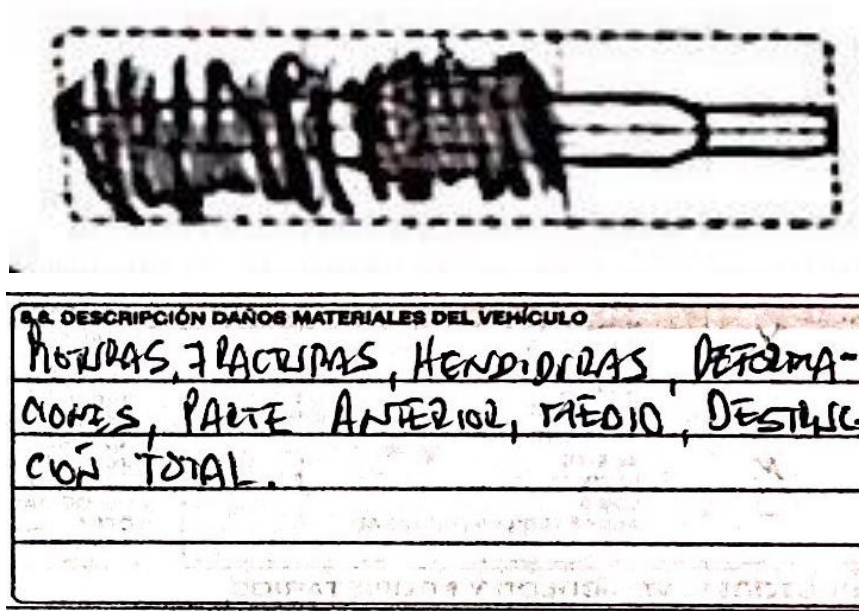 DESCRIPCIÓN DAÑOS MATERIALES DEL VEHÍCULO
FRACTURAS, HENDIDURAS, DEFORMA-
CIONES, PARTE ANTERIOR, MEDIO, DESTRUC
CIÓN TOTAL.